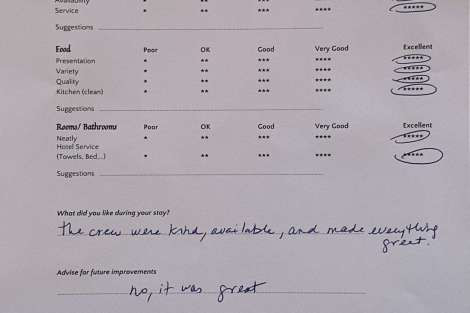 Availability
Service * ** *** **** *****
Suggestions
Food Poor OK Good Very Good Excellent
Presentation * ** *** **** *****
Variety * ** *** **** *****
Quality * ** *** **** *****
Kitchen (clean) * ** *** **** *****
Suggestions
Rooms/ Bathrooms Poor OK Good Very Good Excellent
Neatly * ** *** **** *****
Hotel Service
(Towels, Bed,..) * ** *** **** *****
Suggestions
What did you like during your stay?
the crew were kind, available, and made everything
great.
Advise for future improvements
no, it was great